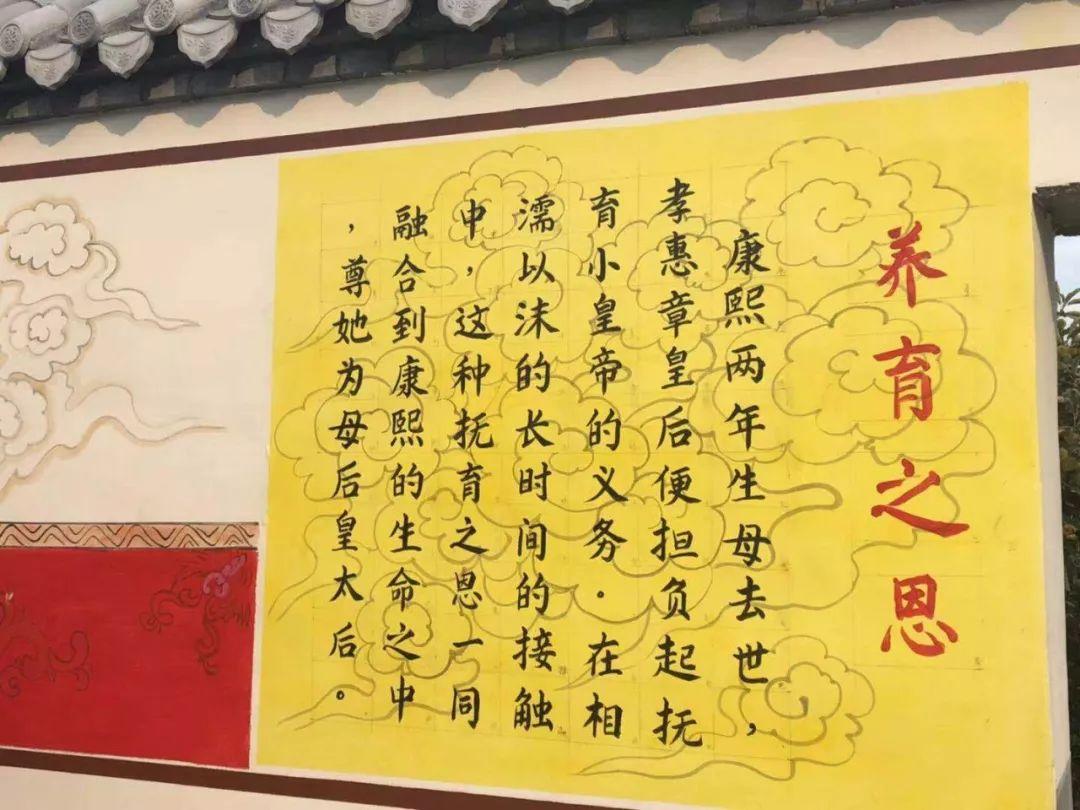 养育之恩
康熙两年生母去世，
孝惠章皇后便担负起抚
育小皇帝的义务．在相
濡以沫的长时间的接触
中，这种抚育之恩一同
融合到康熙的生命之中
，尊她为母后皇太后。